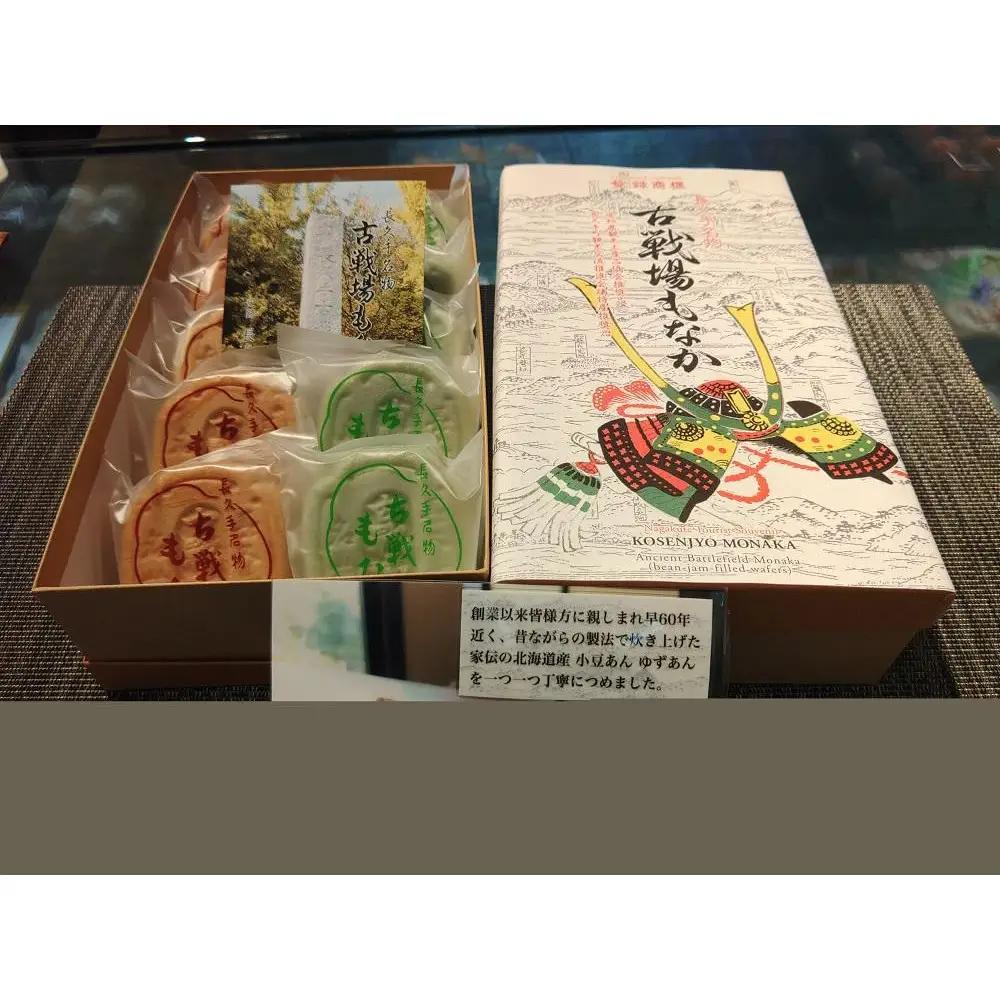 長久手名物
古戦場も
長久手
古
も
古
も
長久手名物
古戦
も
長久手名物
古戦
もな
登録商標
長久手名物
古戦場もなか
Nagakute Tourist Souvenir
KOSENJYO MONAKA
Ancient Battlefield Monaka
(bean-jam-filled wafers)
創業以来皆様方に親しまれ早60年
近く、昔ながらの製法で炊き上げた
家伝の北海道産 小豆あん ゆずあん
を一つ一つ丁寧につめました。